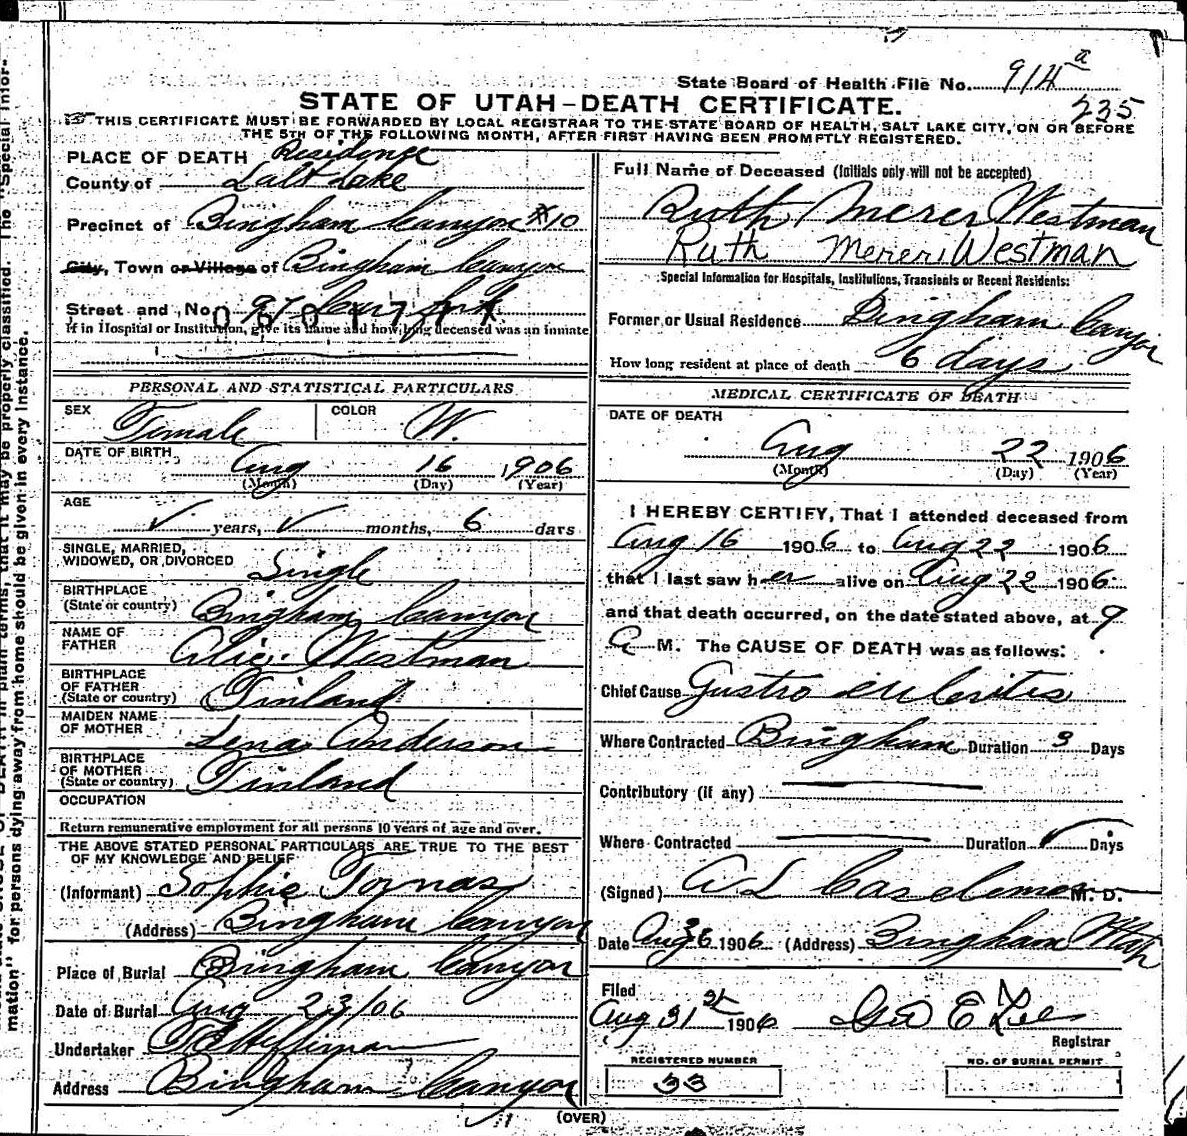 State Board of Health File No. 914 a
235
STATE OF UTAH–DEATH CERTIFICATE.
THIS CERTIFICATE MUST BE FORWARDED BY LOCAL REGISTRAR TO THE STATE BOARD OF HEALTH, SALT LAKE CITY, ON OR BEFORE
THE 5TH OF THE FOLLOWING MONTH, AFTER FIRST HAVING BEEN PROMPTLY REGISTERED.
PLACE OF DEATH Residence
County of Salt Lake
Precinct of Bingham Canyon #10
City, Town or Village of Bingham Canyon
Street and No.
If in Hospital or Institution, give its name and how long deceased was an inmate
PERSONAL AND STATISTICAL PARTICULARS
SEX Female COLOR W.
DATE OF BIRTH Aug 16 1906
(Month) (Day) (Year)
AGE
years, months, 6 days
SINGLE, MARRIED,
WIDOWED, OR DIVORCED Single
BIRTHPLACE
(State or country) Bingham Canyon
NAME OF
FATHER Westman
BIRTHPLACE
OF FATHER
(State or country) Finland
MAIDEN NAME
OF MOTHER Lena Anderson
BIRTHPLACE
OF MOTHER
(State or country) Finland
OCCUPATION
Return remunerative employment for all persons 10 years of age and over.
THE ABOVE STATED PERSONAL PARTICULARS ARE TRUE TO THE BEST
OF MY KNOWLEDGE AND BELIEF
(Informant) Sophie Tornas
(Address) Bingham Canyon
Place of Burial Bingham Canyon
Date of Burial Aug 23/06
Undertaker
Address Bingham Canyon
Full Name of Deceased (Initials only will not be accepted)
Ruth Merer Westman
Ruth Merer Westman
Special Information for Hospitals, Institutions, Transients or Recent Residents:
Former or Usual Residence Bingham Canyon
How long resident at place of death 6 days
MEDICAL CERTIFICATE OF DEATH
DATE OF DEATH
Aug 22 1906
(Month) (Day) (Year)
I HEREBY CERTIFY, That I attended deceased from
Aug 16 1906 to Aug 22 1906
that I last saw her alive on Aug 22 1906
and that death occurred, on the date stated above, at 9
A M. The CAUSE OF DEATH was as follows:
Chief Cause Gastro
Where Contracted Bingham Duration 3 Days
Contributory (if any)
Where Contracted Duration Days
(Signed) A L M. D.
Date Aug 1906 (Address) Bingham Utah
Filed
Aug 31st 1906 Geo E Lee
Registrar
REGISTERED NUMBER NO. OF BURIAL PERMIT
33
(OVER)
mation" for persons dying away from home should be given in every instance.